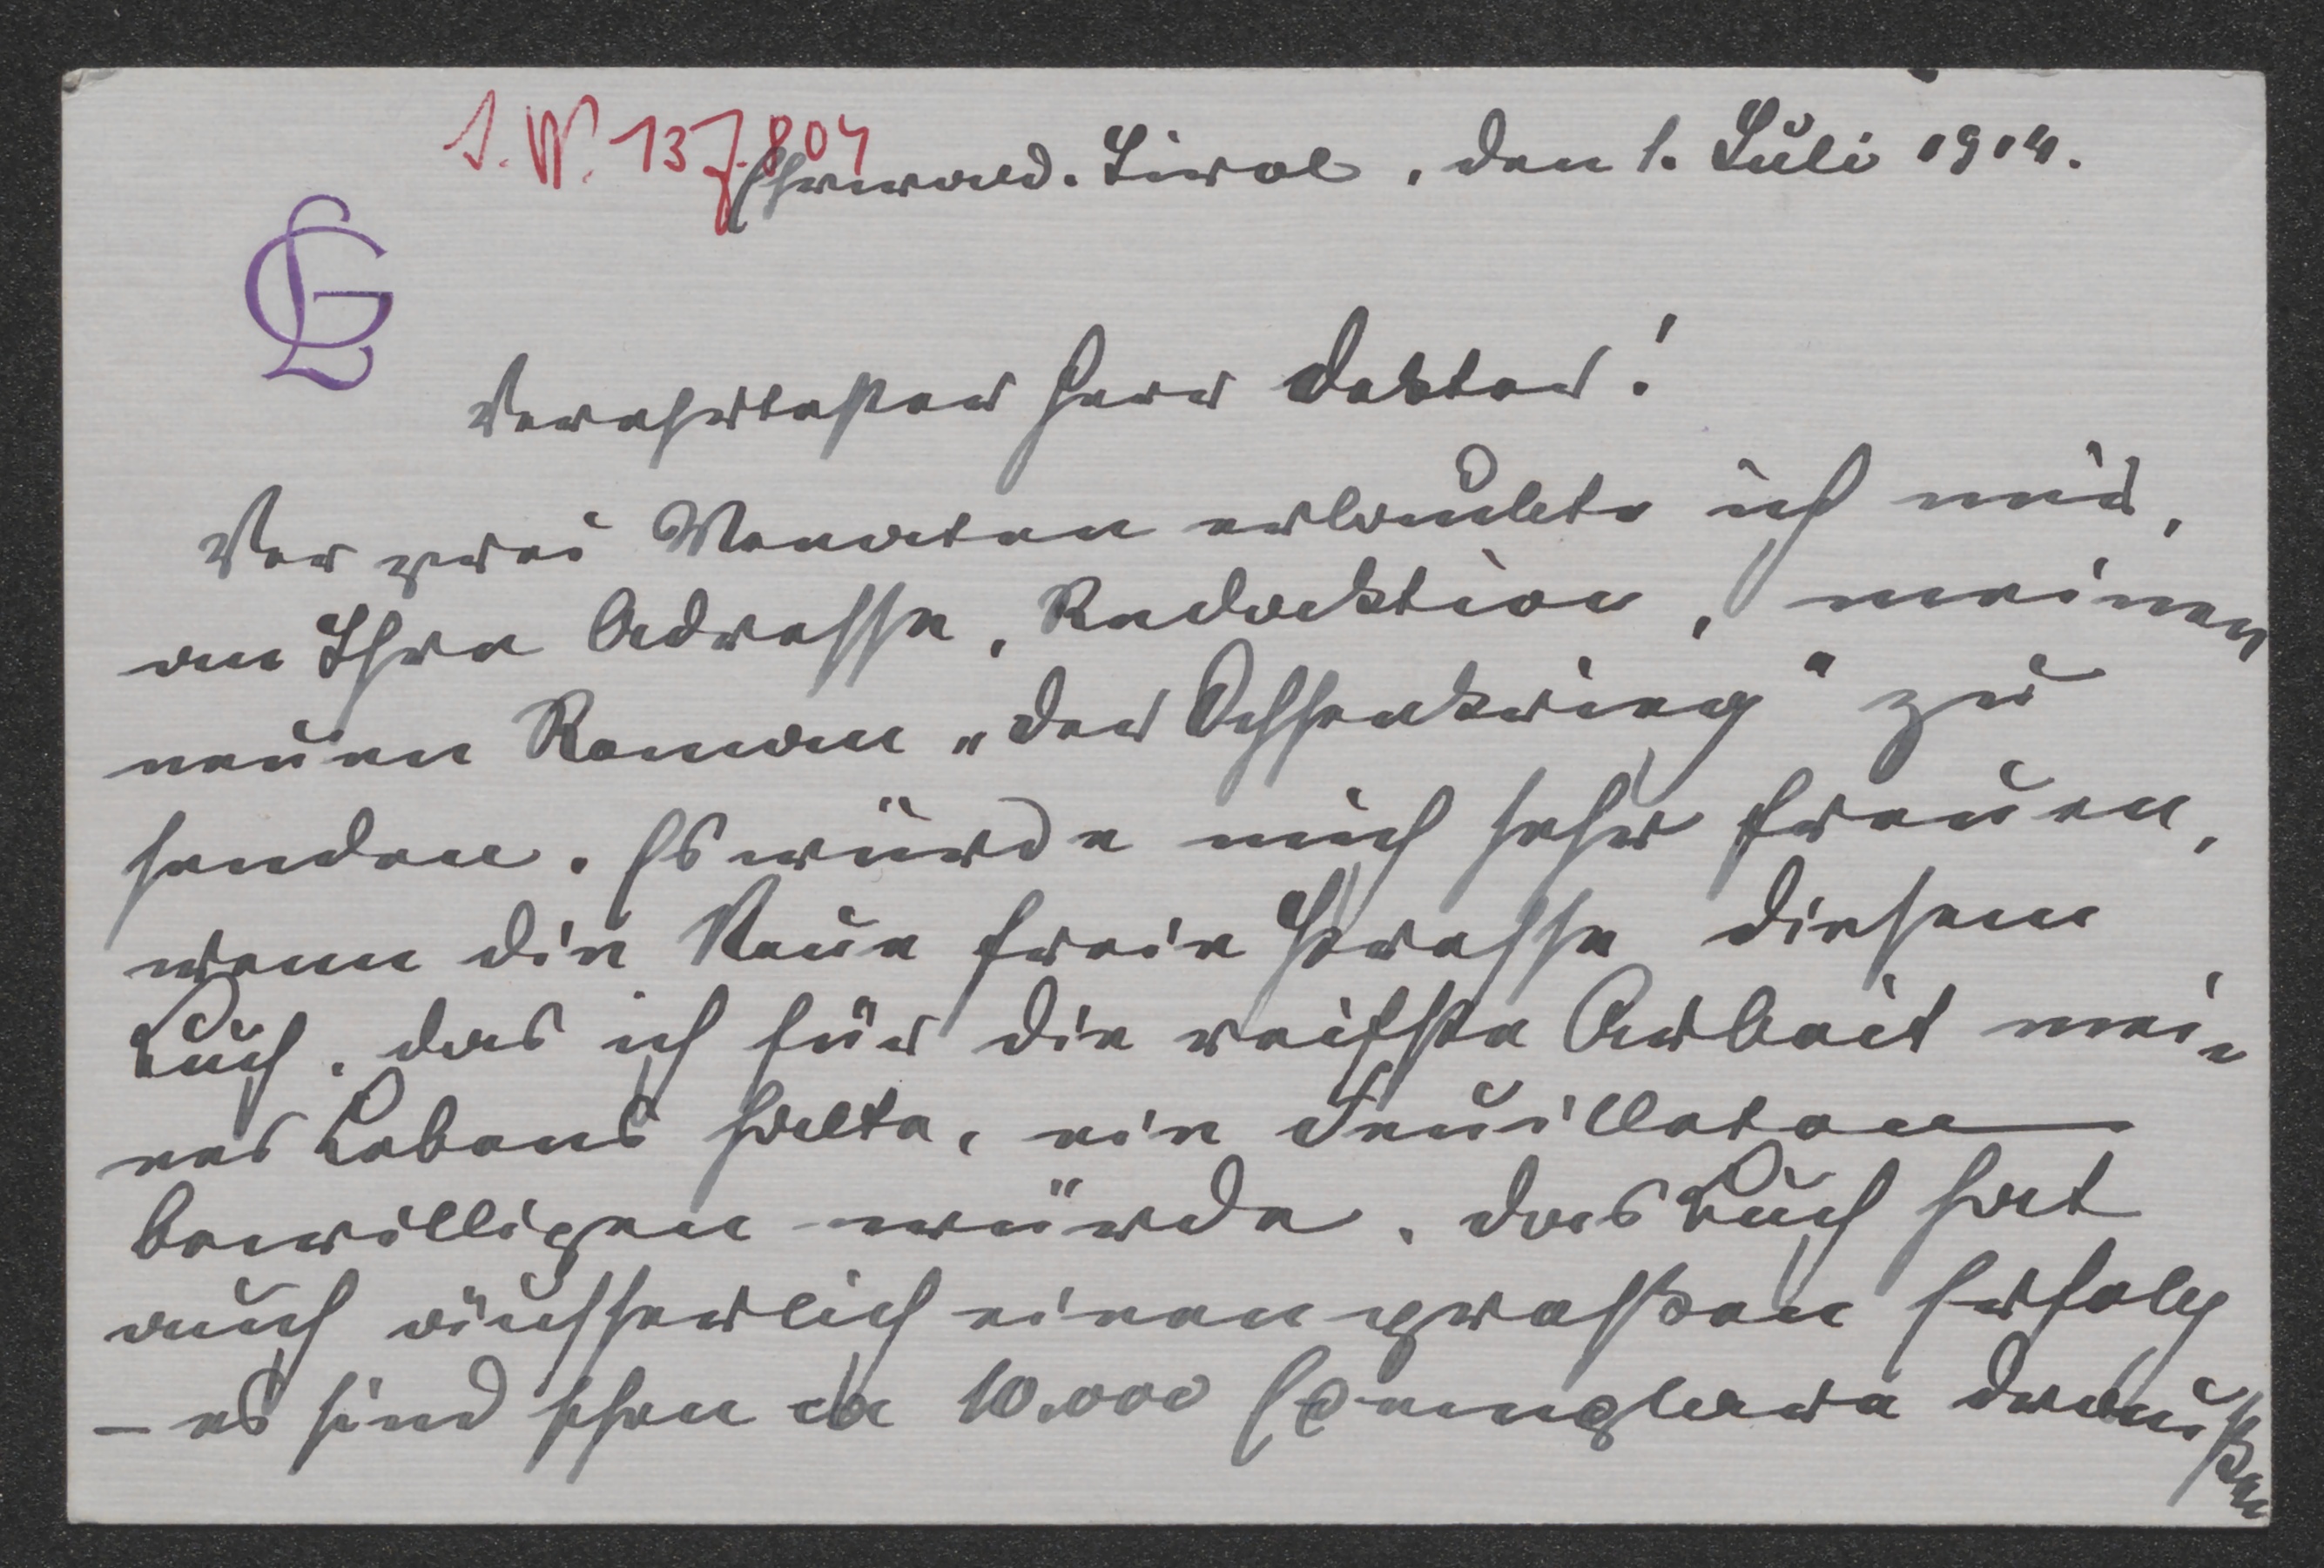 I. N. 137.804
Ehrwald. Tirol, den 1. Juli 1914.
GL
Verehrtester Herr Doktor!
Vor zwei Monaten erlaubte ich mir,
an Ihre Adresse, Redaktion, meinen
neuen Roman „Der Ochsenkrieg" zu
senden. Es würde mich sehr freuen,
wenn die Neue freie Presse diesem
Buch, das ich für die reifste Arbeit mei-
nes Lebens halte, ein Feuilleton
bewilligen würde. Das Buch hat
auch äusserlich einen großen Erfolg
– es sind schon ca 10.000 Exemplare draußen